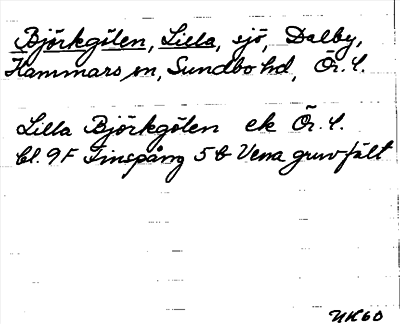 Björkgölen, Lilla, sjö, Dalby,
Hammars sn, Sundbo hd, Ör. l.
Lilla Björkgölen ek Ör. l.
bl. 9F Finspång 5b Vena gruvfält
NK60